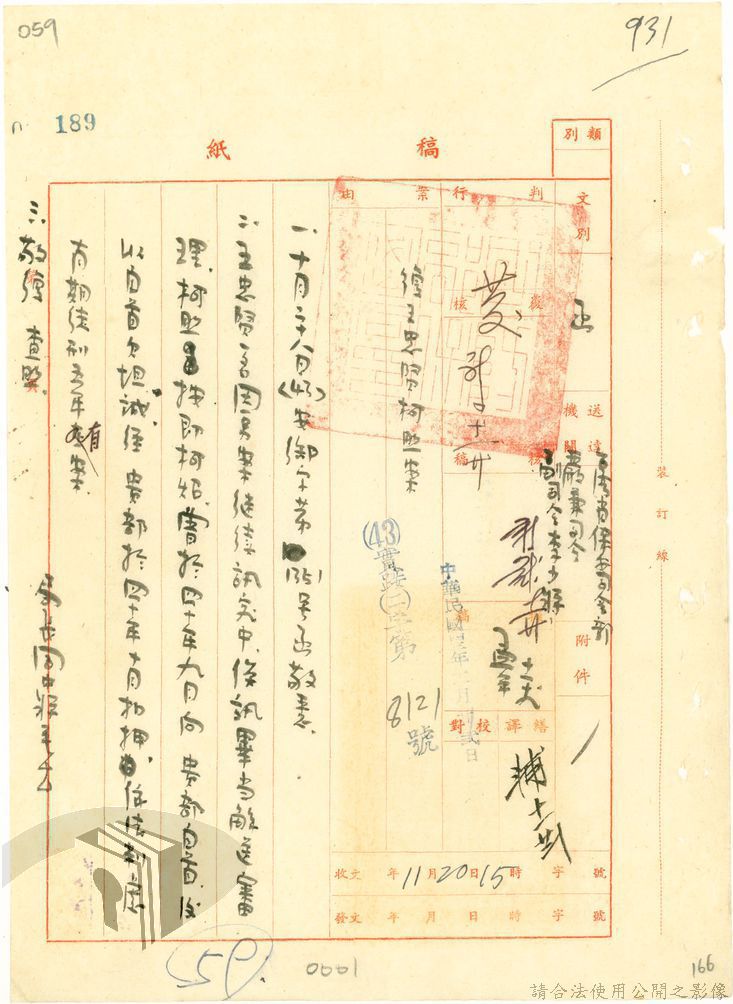 059
931
189
稿紙
類別
文別
函
送達機關
台灣省保安司令部
兼司令
副司令李
附件
判行
覆核
核稿
擬稿
繕譯校對
案由
復王忠賢柯熙案
中華民國
(43)實踐(二)字第8121號
一、十月二十八日(43)安御字第1351号函敬悉。
二、王忠賢一名因另案継續訊究中,俟訊畢当解送審
理,柯熙据即柯旭,曾於四十年九月向 貴部自首,後
以自首欠坦誠,經 貴部於四十年十月扣押,依法判處
有期徒刑五年有案。
三、敬復 查照。
收文 年11月20日15時 字 號
發文 年 月 日 時 字 號
裝訂線
59
0001
166
請合法使用公開之影像